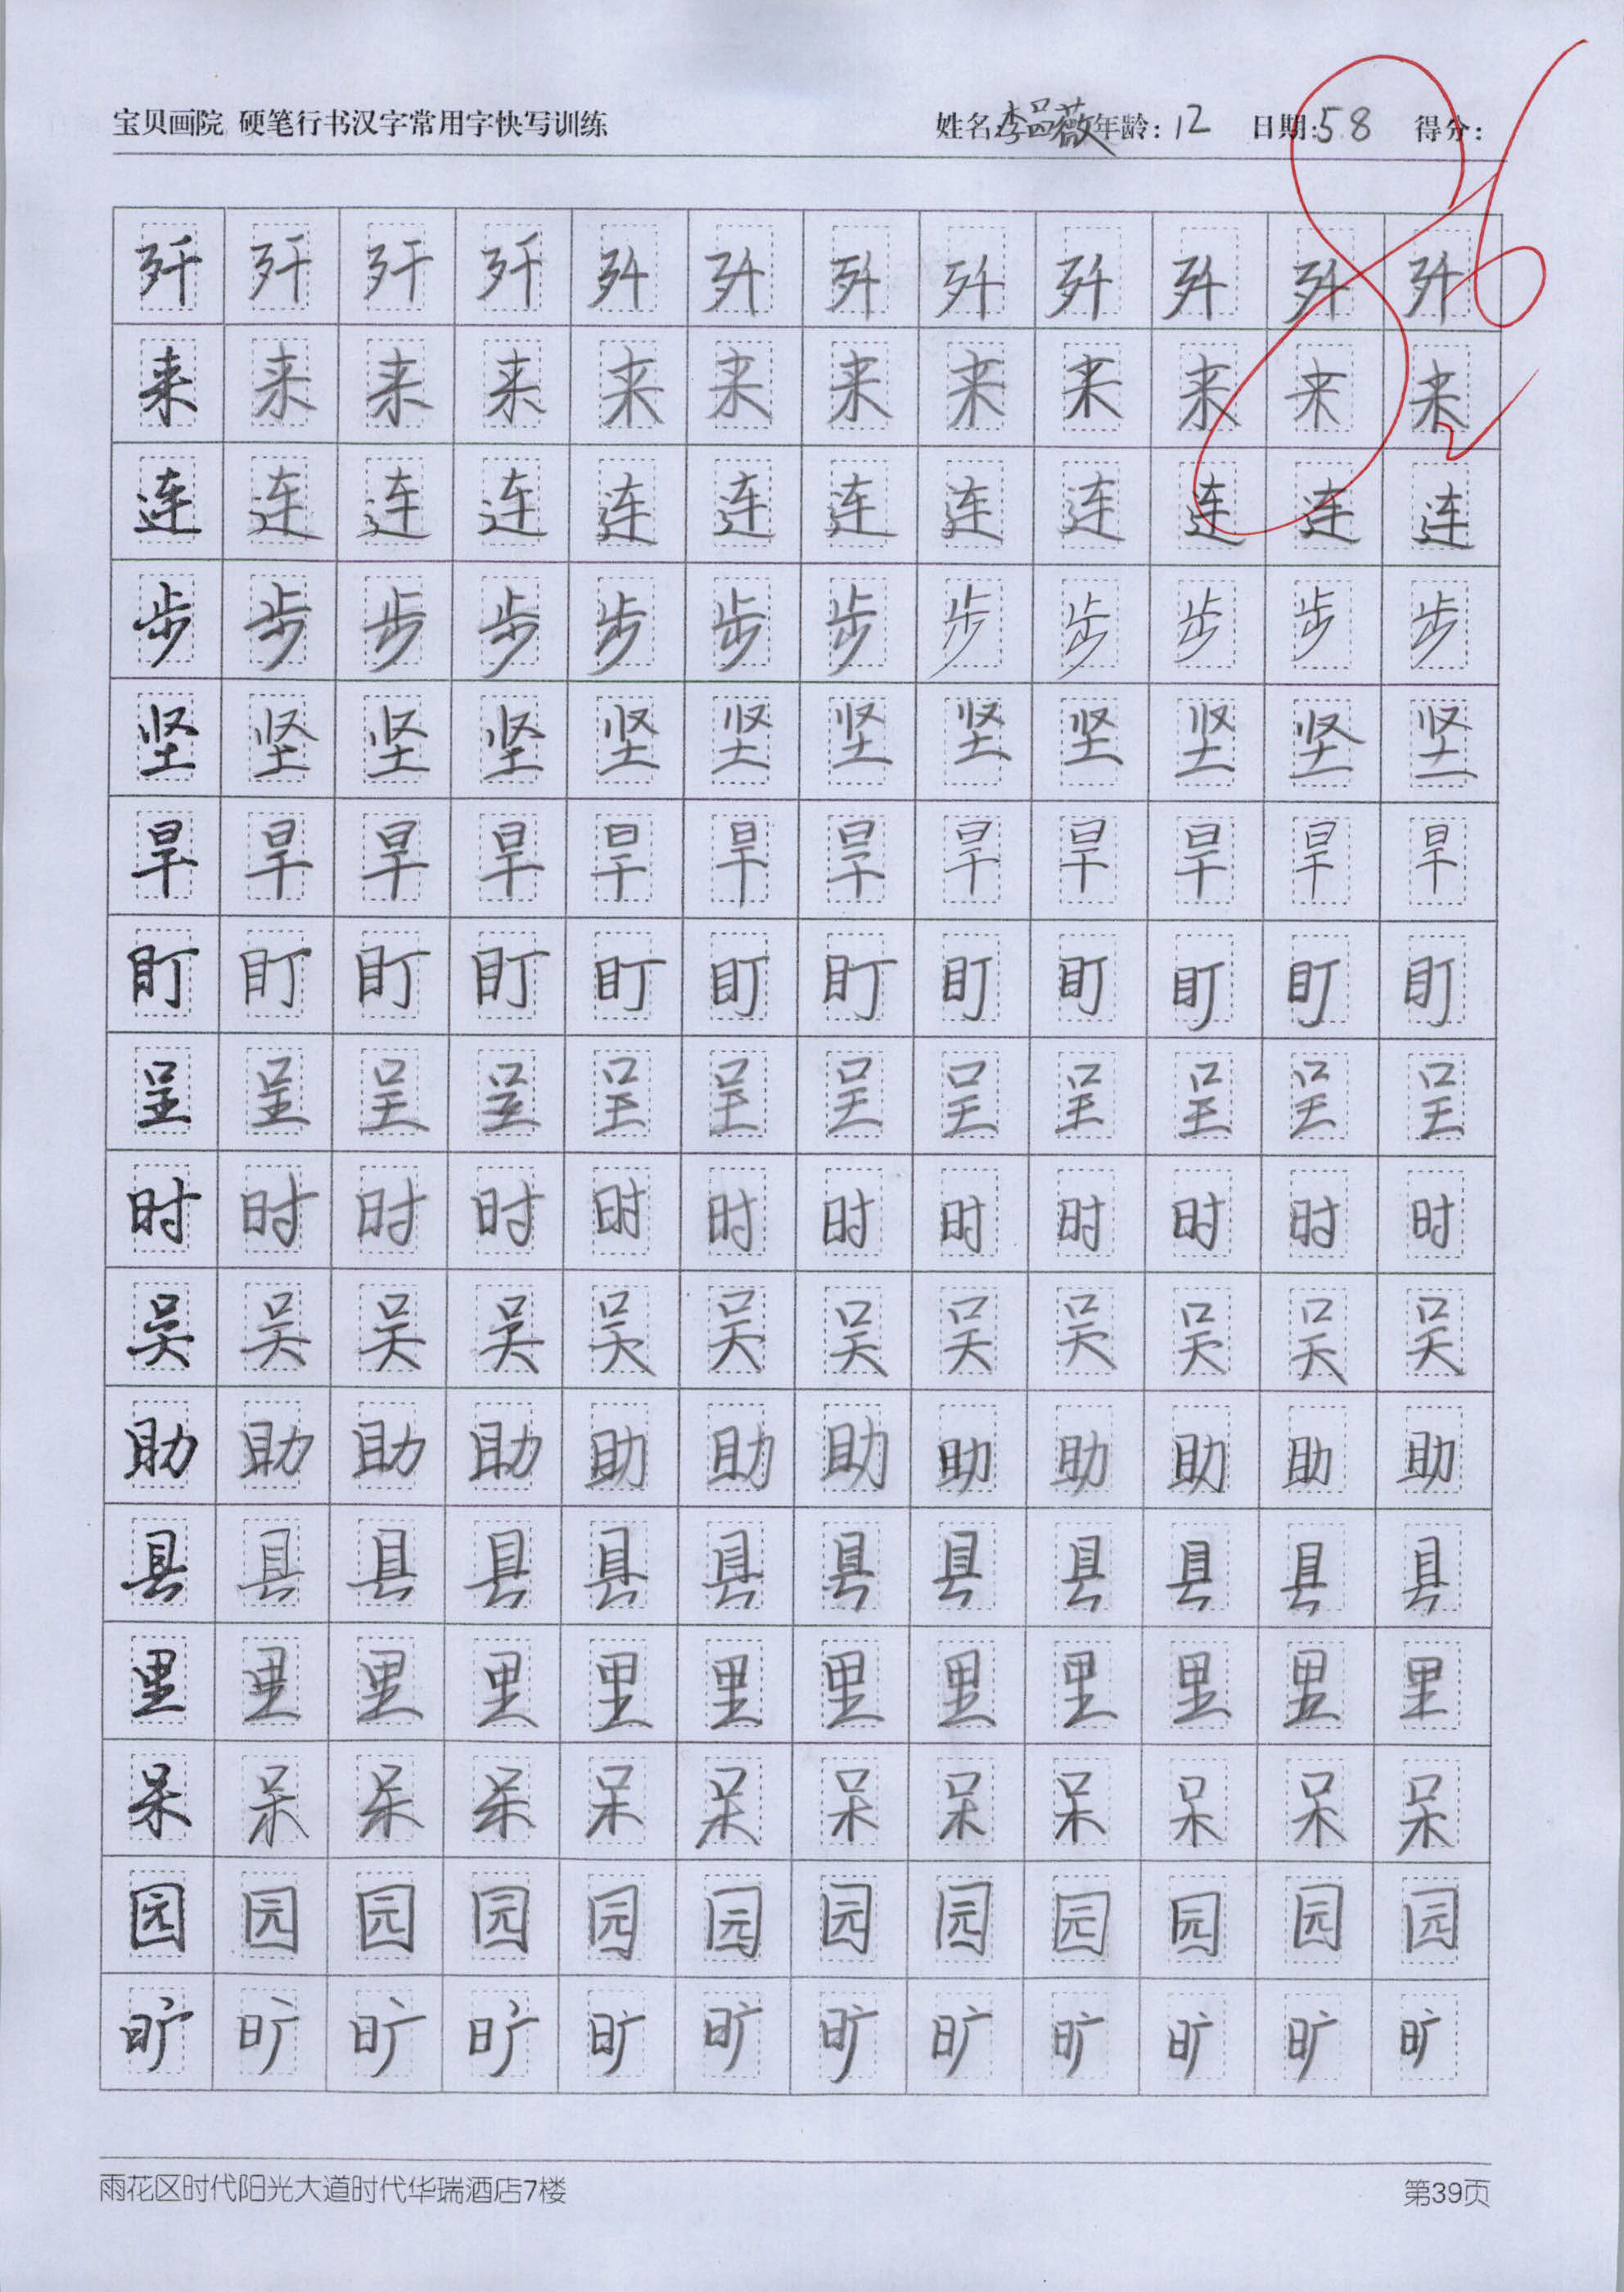 宝贝画院 硬笔行书汉字常用字快写训练 姓名:李思薇 年龄:12 日期:58 得分:86
歼 歼 歼 歼 歼 歼 歼 歼 歼 歼 歼 歼
来 来 来 来 来 来 来 来 来 来 来 来
连 连 连 连 连 连 连 连 连 连 连 连
步 步 步 步 步 步 步 步 步 步 步 步
坚 坚 坚 坚 坚 坚 坚 坚 坚 坚 坚 坚
旱 旱 旱 旱 旱 旱 旱 旱 旱 旱 旱 旱
盯 盯 盯 盯 盯 盯 盯 盯 盯 盯 盯 盯
呈 呈 呈 呈 呈 呈 呈 呈 呈 呈 呈 呈
时 时 时 时 时 时 时 时 时 时 时 时
吴 吴 吴 吴 吴 吴 吴 吴 吴 吴 吴 吴
助 助 助 助 助 助 助 助 助 助 助 助
县 县 县 县 县 县 县 县 县 县 县 县
里 里 里 里 里 里 里 里 里 里 里 里
呆 呆 呆 呆 呆 呆 呆 呆 呆 呆 呆 呆
园 园 园 园 园 园 园 园 园 园 园 园
旷 旷 旷 旷 旷 旷 旷 旷 旷 旷 旷 旷
雨花区时代阳光大道时代华瑞酒店7楼 第39页